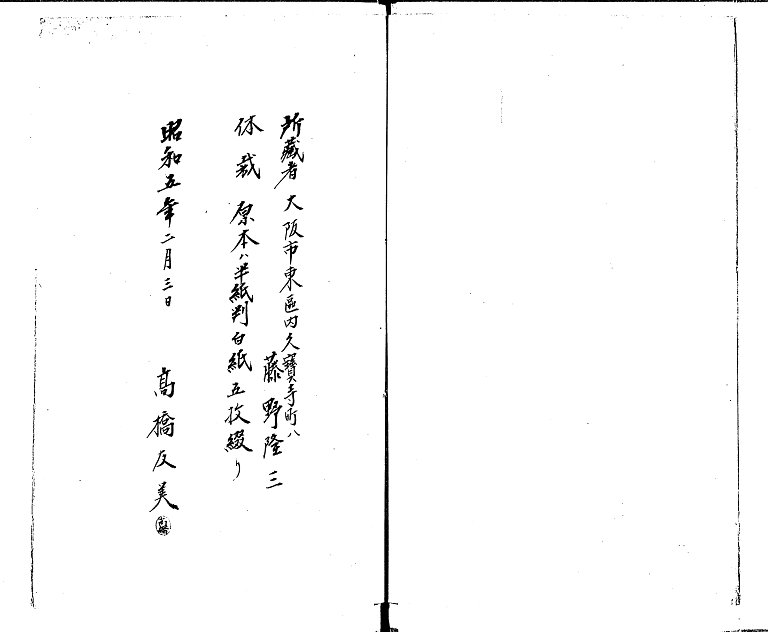 所藏者 大阪市東區内久寶寺町八
藤野隆三
体裁 原本ハ半紙判白紙五枚綴リ
昭和五年二月三日 高橋友美